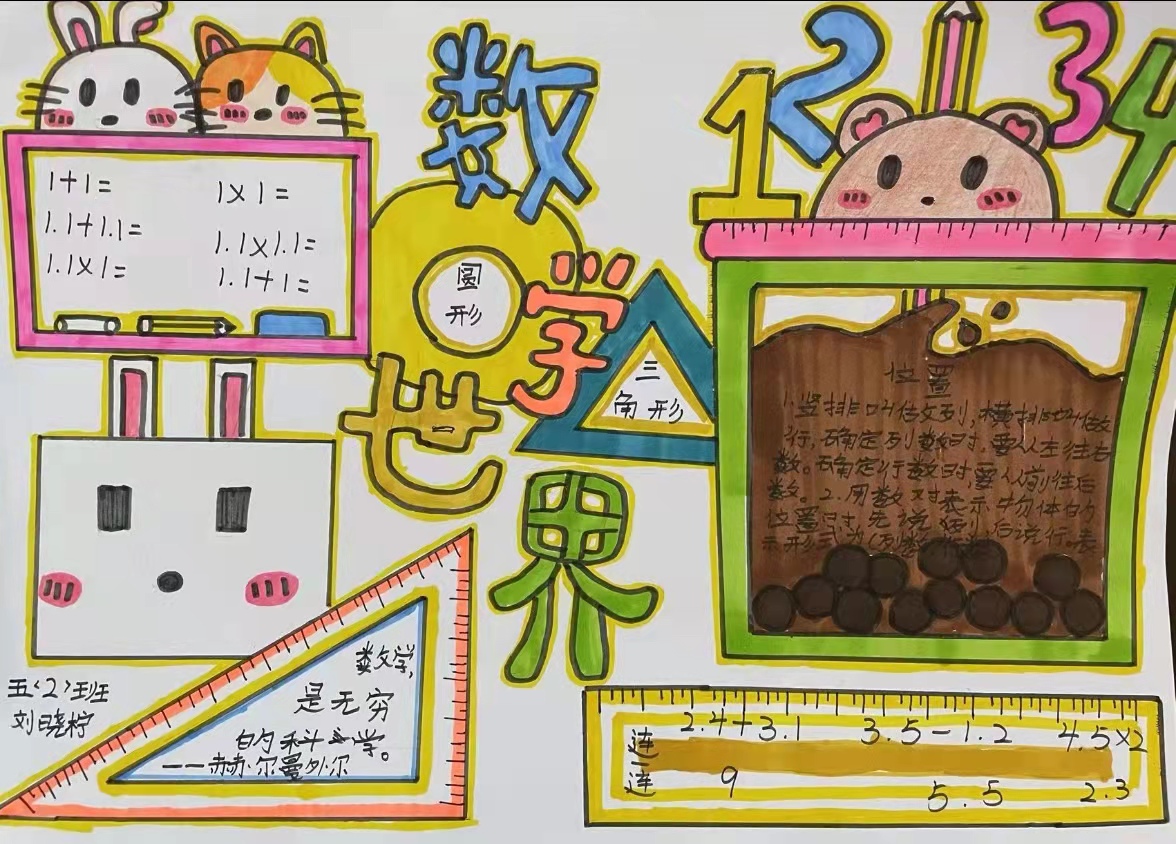 数学世界
1 2 3 4
1+1=
1×1=
1.1+1.1=
1.1×1.1=
1.1×1=
1.1+1=
圆
形
三
角形
位置
1.竖排叫做列,横排叫做
行,确定列数时,要从左往右
数。确定行数时,要从前往后
数。2.用数对表示物体的
位置时,先说列后说行。表
示形式为(列数
五(2)班
刘晓柠
数学,
是无穷
的科学。
——赫尔曼外尔
连一连
2.4+3.1 3.5-1.2 4.5×2
9 5.5 2.3